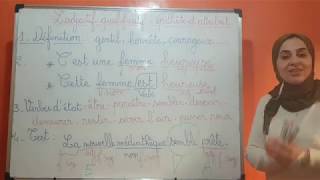 L'adjectif qualificatif épithète et attribut
1. Définition : gentil, honnête, courageux
2. * C'est une femme heureuse.
* Cette femme est heureuse.
3. Verbes d'état : être, paraître, sembler, devenir
demeurer, rester, avoir l'air, passer pour
4. Test : La nouvelle médiathèque semble prête.